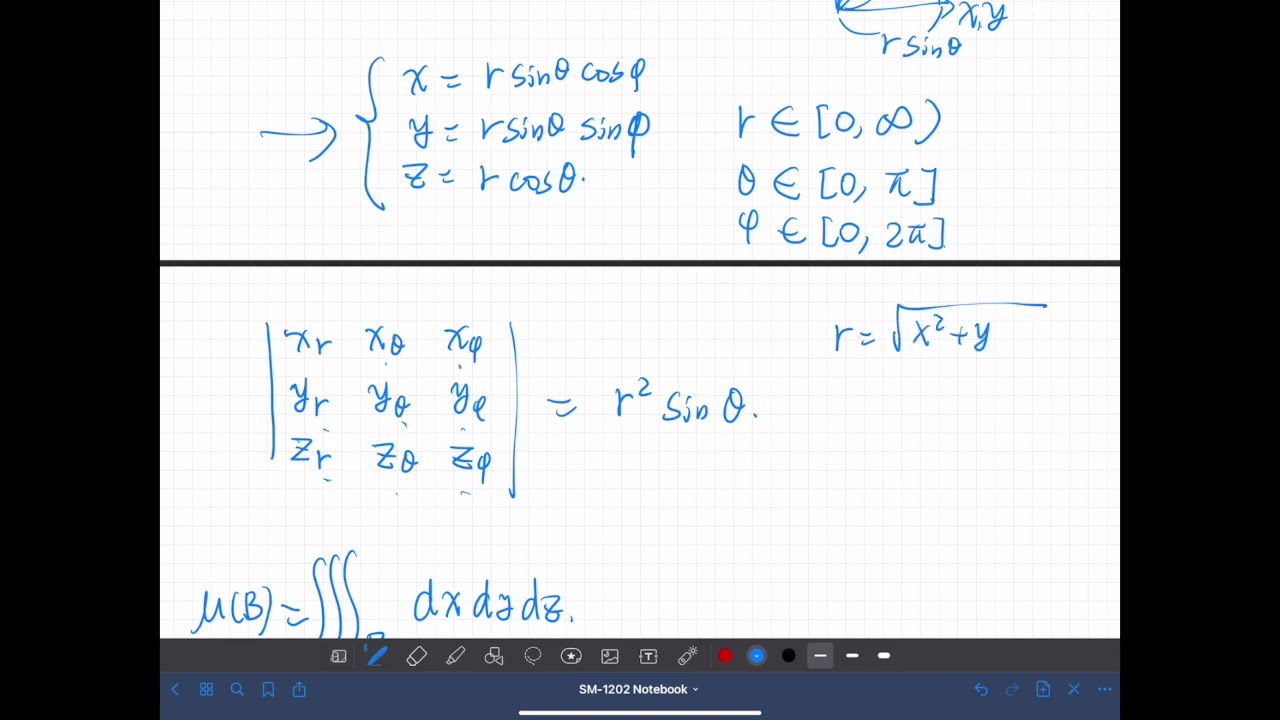 x, y
r sinθ
x = r sinθ cosφ
y = r sinθ sinφ
z = r cosθ.
r ∈ [0, ∞)
θ ∈ [0, π]
φ ∈ [0, 2π]
r = √x² + y
| x_r x_θ x_φ |
| y_r y_θ y_φ | = r² sin θ.
| z_r z_θ z_φ |
μ(B) = ∭_B dx dy dz.
SM-1202 Notebook